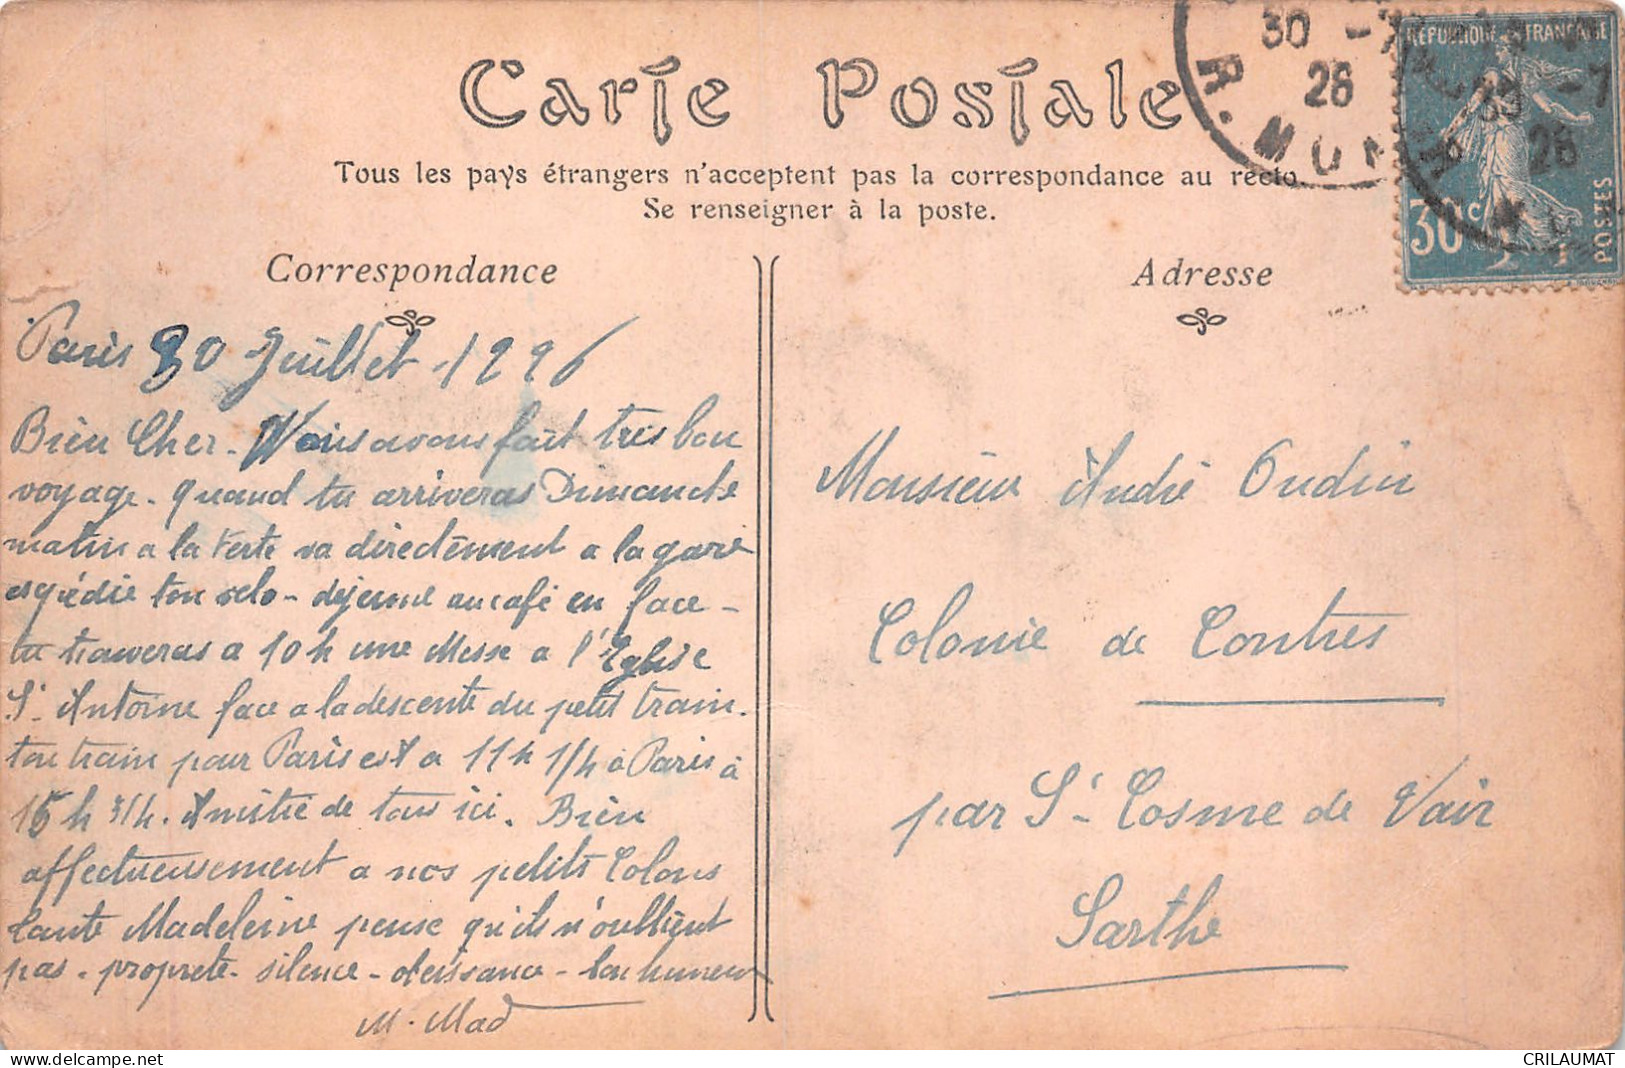 Carte Postale
Tous les pays étrangers n'acceptent pas la correspondance au recto.
Se renseigner à la poste.
Correspondance
Adresse
30 -7
26
R. MON
RÉPUBLIQUE FRANÇAISE
30c
POSTES
30 -7
26
Paris 30 Juillet 1926
Bien Cher. Nous avons fait très bon
voyage. quand tu arriveras Dimanche
matin a la Ferte va directement a la gare
expédie ton velo - déjeune au café en face -
tu trouveras a 10h une Messe a l'Eglise
St. Antoine face a la descente du petit train.
ton train pour Paris est a 11h 1/4 à Paris à
15h 3/4. Amitié de tous ici. Bien
affectueusement a nos petits Colons
tante Madeleine pense qu'ils n'oublient
pas - propreté - silence - obeissance - bon humeur
M. Mad
Monsieur André Oudin
Colonie de Contres
par St Cosme de Vair
Sarthe
delcampe.net
CRILAUMAT